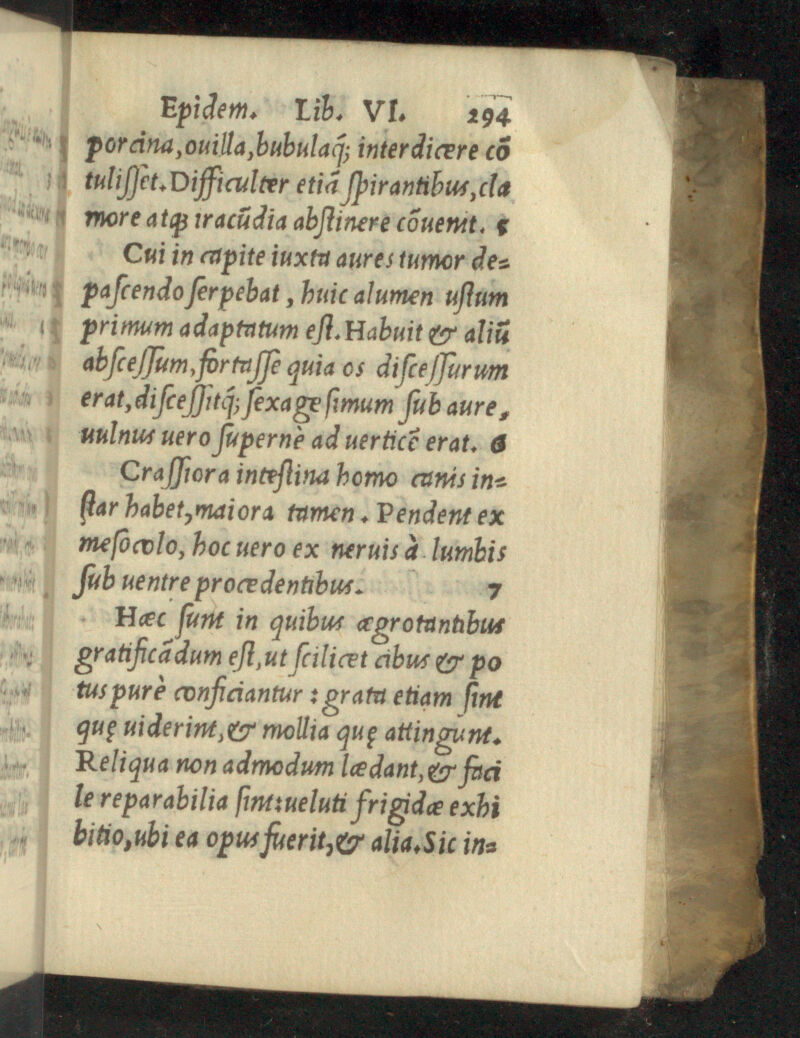 Epidem. Lib. VI. 294
porcina,ouilla,bubulaq́; interdicere cō
tuliſſet.Difficulter etiā ſpirantibus,cla
more atq; iracūdia abſtinere cōuenit. 5
Cui in capite iuxta aures tumor de=
paſcendo ſerpebat, huic alumen uſtum
primum adaptatum eſt.Habuit & aliū
abſceſſum,fortaſſe quia os diſceſſurum
erat,diſceſſitq́; ſexageſimum ſub aure,
uulnus uero ſupernè ad uerticē erat. 6
Craſſiora inteſtina homo canis in=
ſtar habet,maiora tamen. Pendent ex
meſocolo, hoc uero ex neruis à lumbis
ſub uentre procedentibus. 7
Hæc ſunt in quibus ægrotantibus
gratificādum eſt,ut ſcilicet cibus & po
tus purè conficiantur : grata etiam ſint
quę uiderint,& mollia quę attingunt.
Reliqua non admodum lædant,& faci
le reparabilia ſint:ueluti frigidæ exhi
bitio,ubi ea opus fuerit,& alia.Sic in=